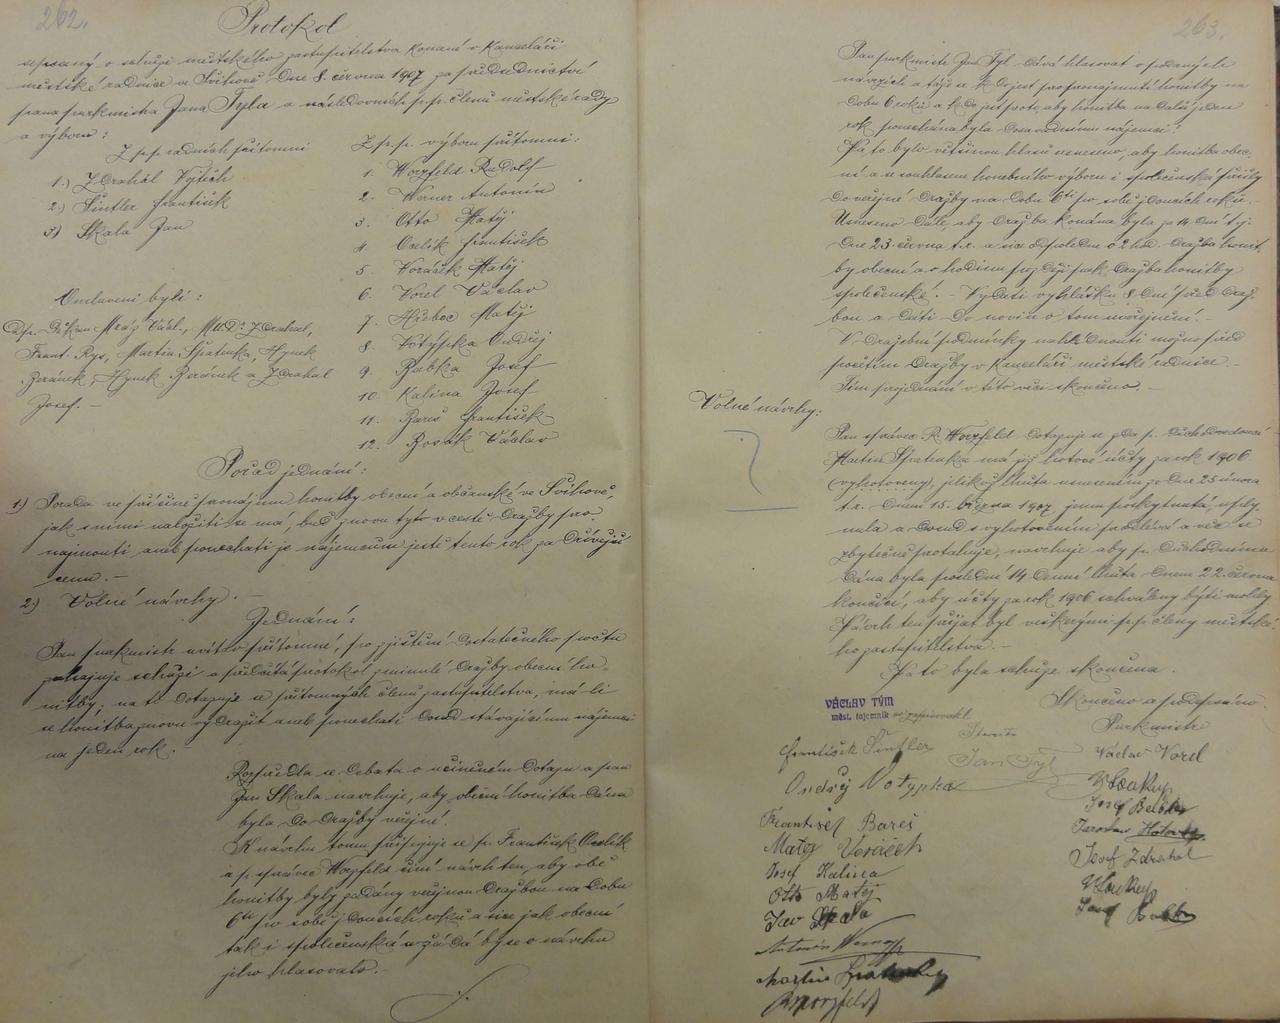 262.
Protokol
sepsaný o schůzi městského zastupitelstva konané v kanceláři
městské radnice ve Švihově dne 8. června 1907 za předsednictví
pana purkmistra Jana Tyla a následovních p.p. členů městské rady
a výboru:
Z p.p. radních přítomni
1.) Zdrahal Vojtěch
2.) Šintler František
3.) Skala Jan
Omluveni byli:
Dp. Děkan Mráz Václ., MUDr. Zdrahal,
Frant. Rys, Martin Špatenka, Hynek
Beránek, Hynek Beránek a Zdrahal
Josef. –
Z p.p. výboru přítomni:
1. Worzfeld Rudolf
2. Werner Antonín
3. Otto Matěj
4. Orlík František
5. Voráček Matěj
6. Vorel Václav
7. Matěj
8. Votýpka Ondřej
9. Babka Josef
10. Kalina Josef
11. Bareš František
12. Václav
Pořad jednání:
1.) Porada ve příčině pronájmu honitby obecní a občanské ve Švihově,
jak s nimi naložiti se má, buď znovu tyto v cestě dražby pro-
najmouti aneb ponechati je nájemcům ještě tento rok za dřívější
cenu. –
2.) Volné návrhy. –
Jednání:
Pan purkmistr uvítav přítomné, po zjištění dostatečného počtu
zahajuje schůzi a předčítá protokol z minulé dražby obecní ho-
nitby; na to dotazuje se přítomných členů zastupitelstva, má-li
se honitba znovu vydražit aneb ponechati dosud stávajícímu nájemci
na jeden rok. –
Rozpředla se debata o učiněném dotazu a pan
Jan Skala navrhuje, aby obecní honitba dána
byla do dražby veřejné.
K návrhu tomu připojuje se p. František Orlík
a p. správce Worzfeld činí návrh ten, aby obě
honitby byly zadány veřejnou dražbou na dobu
6ti po sobě jdoucích roků a sice jak obecní
tak i společenská a žádá by se o návrhu
jeho hlasovalo. –
263.
Pan purkmistr Jan Tyl dává hlasovat o podaných
návrzích a táže se kdo jest pro pronajmutí honitby na
dobu 6 roků a kdo jest proto, aby honitba na další jeden
rok ponechána byla dosavadnímu nájemci!
Na to bylo většinou hlasů usneseno, aby honitba obec-
ní a se souhlasem honebního výboru i společenská přišly
do veřejné dražby na dobu 6ti po sobě jdoucích roků. –
Usneseno dále, aby dražba konána byla za 14 dní tj.
dne 23. června t.r. a sice odpoledne o 2 hod. dražba honit-
by obecní a o hodinu později pak dražba honitby
společenské. – Vydati vyhlášku 8 dní před draž-
bou a dáti do novin o tom uveřejnění. –
V dražební podmínky nahlédnouti možno před
početím dražby v kanceláři městské radnice. –
Tím projednání v této věci skončeno. –
Volné návrhy:
Pan správce R. Worzfeld dotazuje se zda p. důchodní
Martin Špatenka má již hotové účty za rok 1906
(vyhotoveny), jelikož lhůta usnesením ze dne 25 února
t.r. dnem 15. března 1907 jemu poskytnutá, uply-
nula a dosud s vyhotovením prodlévá a věc se
zbytečně protahuje, navrhuje aby p. důchodnímu
dána byla poslední 14 denní lhůta dnem 22. června
končící, aby účty za rok 1906 schváleny býti mohly.
Návrh ten přijat byl veškerými p.p. členy městské-
ho zastupitelstva. –
Na to byla schůze skončena.
Skončeno a podepsáno.
VÁCLAV TÝM
měst. tajemník
zapisovatel
Starosta
Purkmistr
Jan Tyl
František Šintler
Ondřej Votypka
František Bareš
Matěj Voráček
Josef Kalina
Otto Matěj
Jan Skala
Antonín Werner
Martin Špatenka
Worzfeld
Václav Vorel
Josef Babka
Jaroslav
Josef Zdrahal
Josef